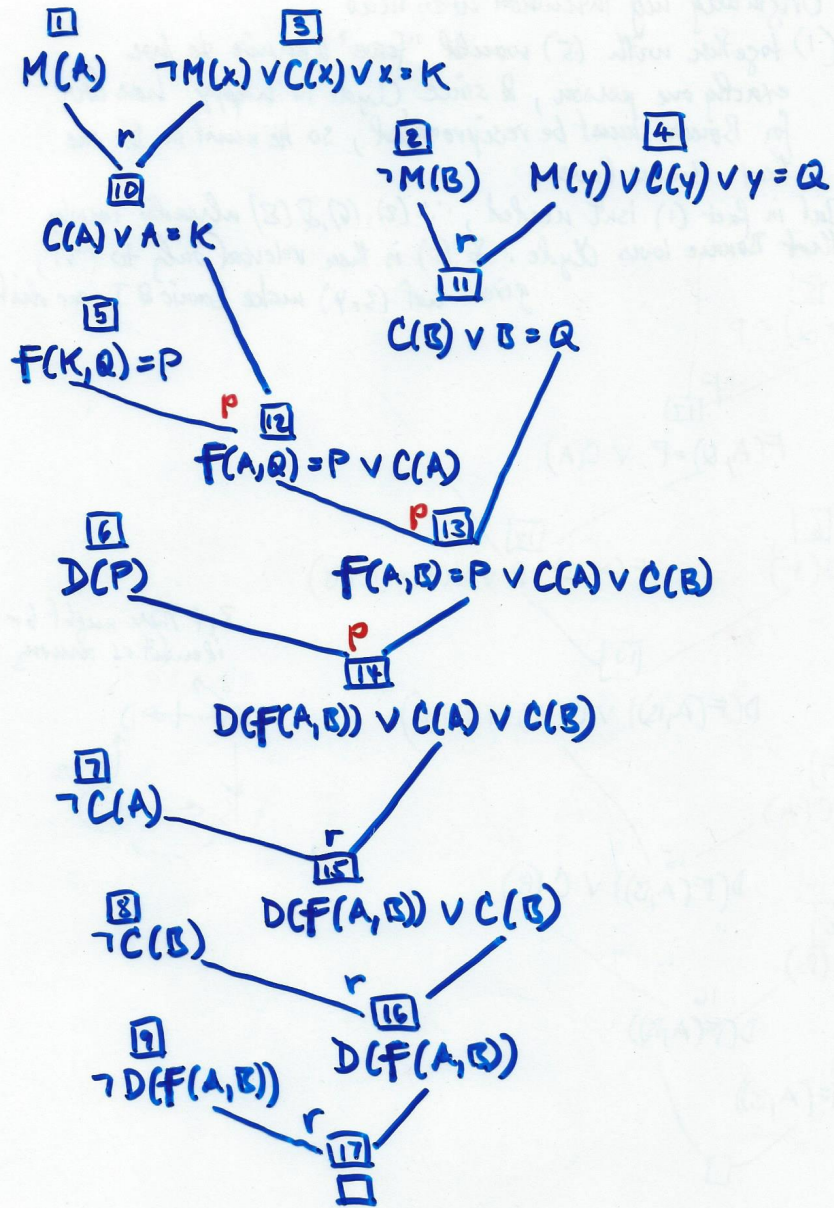 1 3
M(A) ¬M(x) ∨ C(x) ∨ x=K
r
10
C(A) ∨ A=K
2 4
¬M(B) M(y) ∨ C(y) ∨ y=Q
r
11
C(B) ∨ B=Q
5
F(K,Q)=P
P
12
F(A,Q)=P ∨ C(A)
P
13
F(A,B)=P ∨ C(A) ∨ C(B)
6
D(P)
P
14
D(F(A,B)) ∨ C(A) ∨ C(B)
7
¬C(A)
r
15
D(F(A,B)) ∨ C(B)
8
¬C(B)
r
16
D(F(A,B))
9
¬D(F(A,B))
r
17